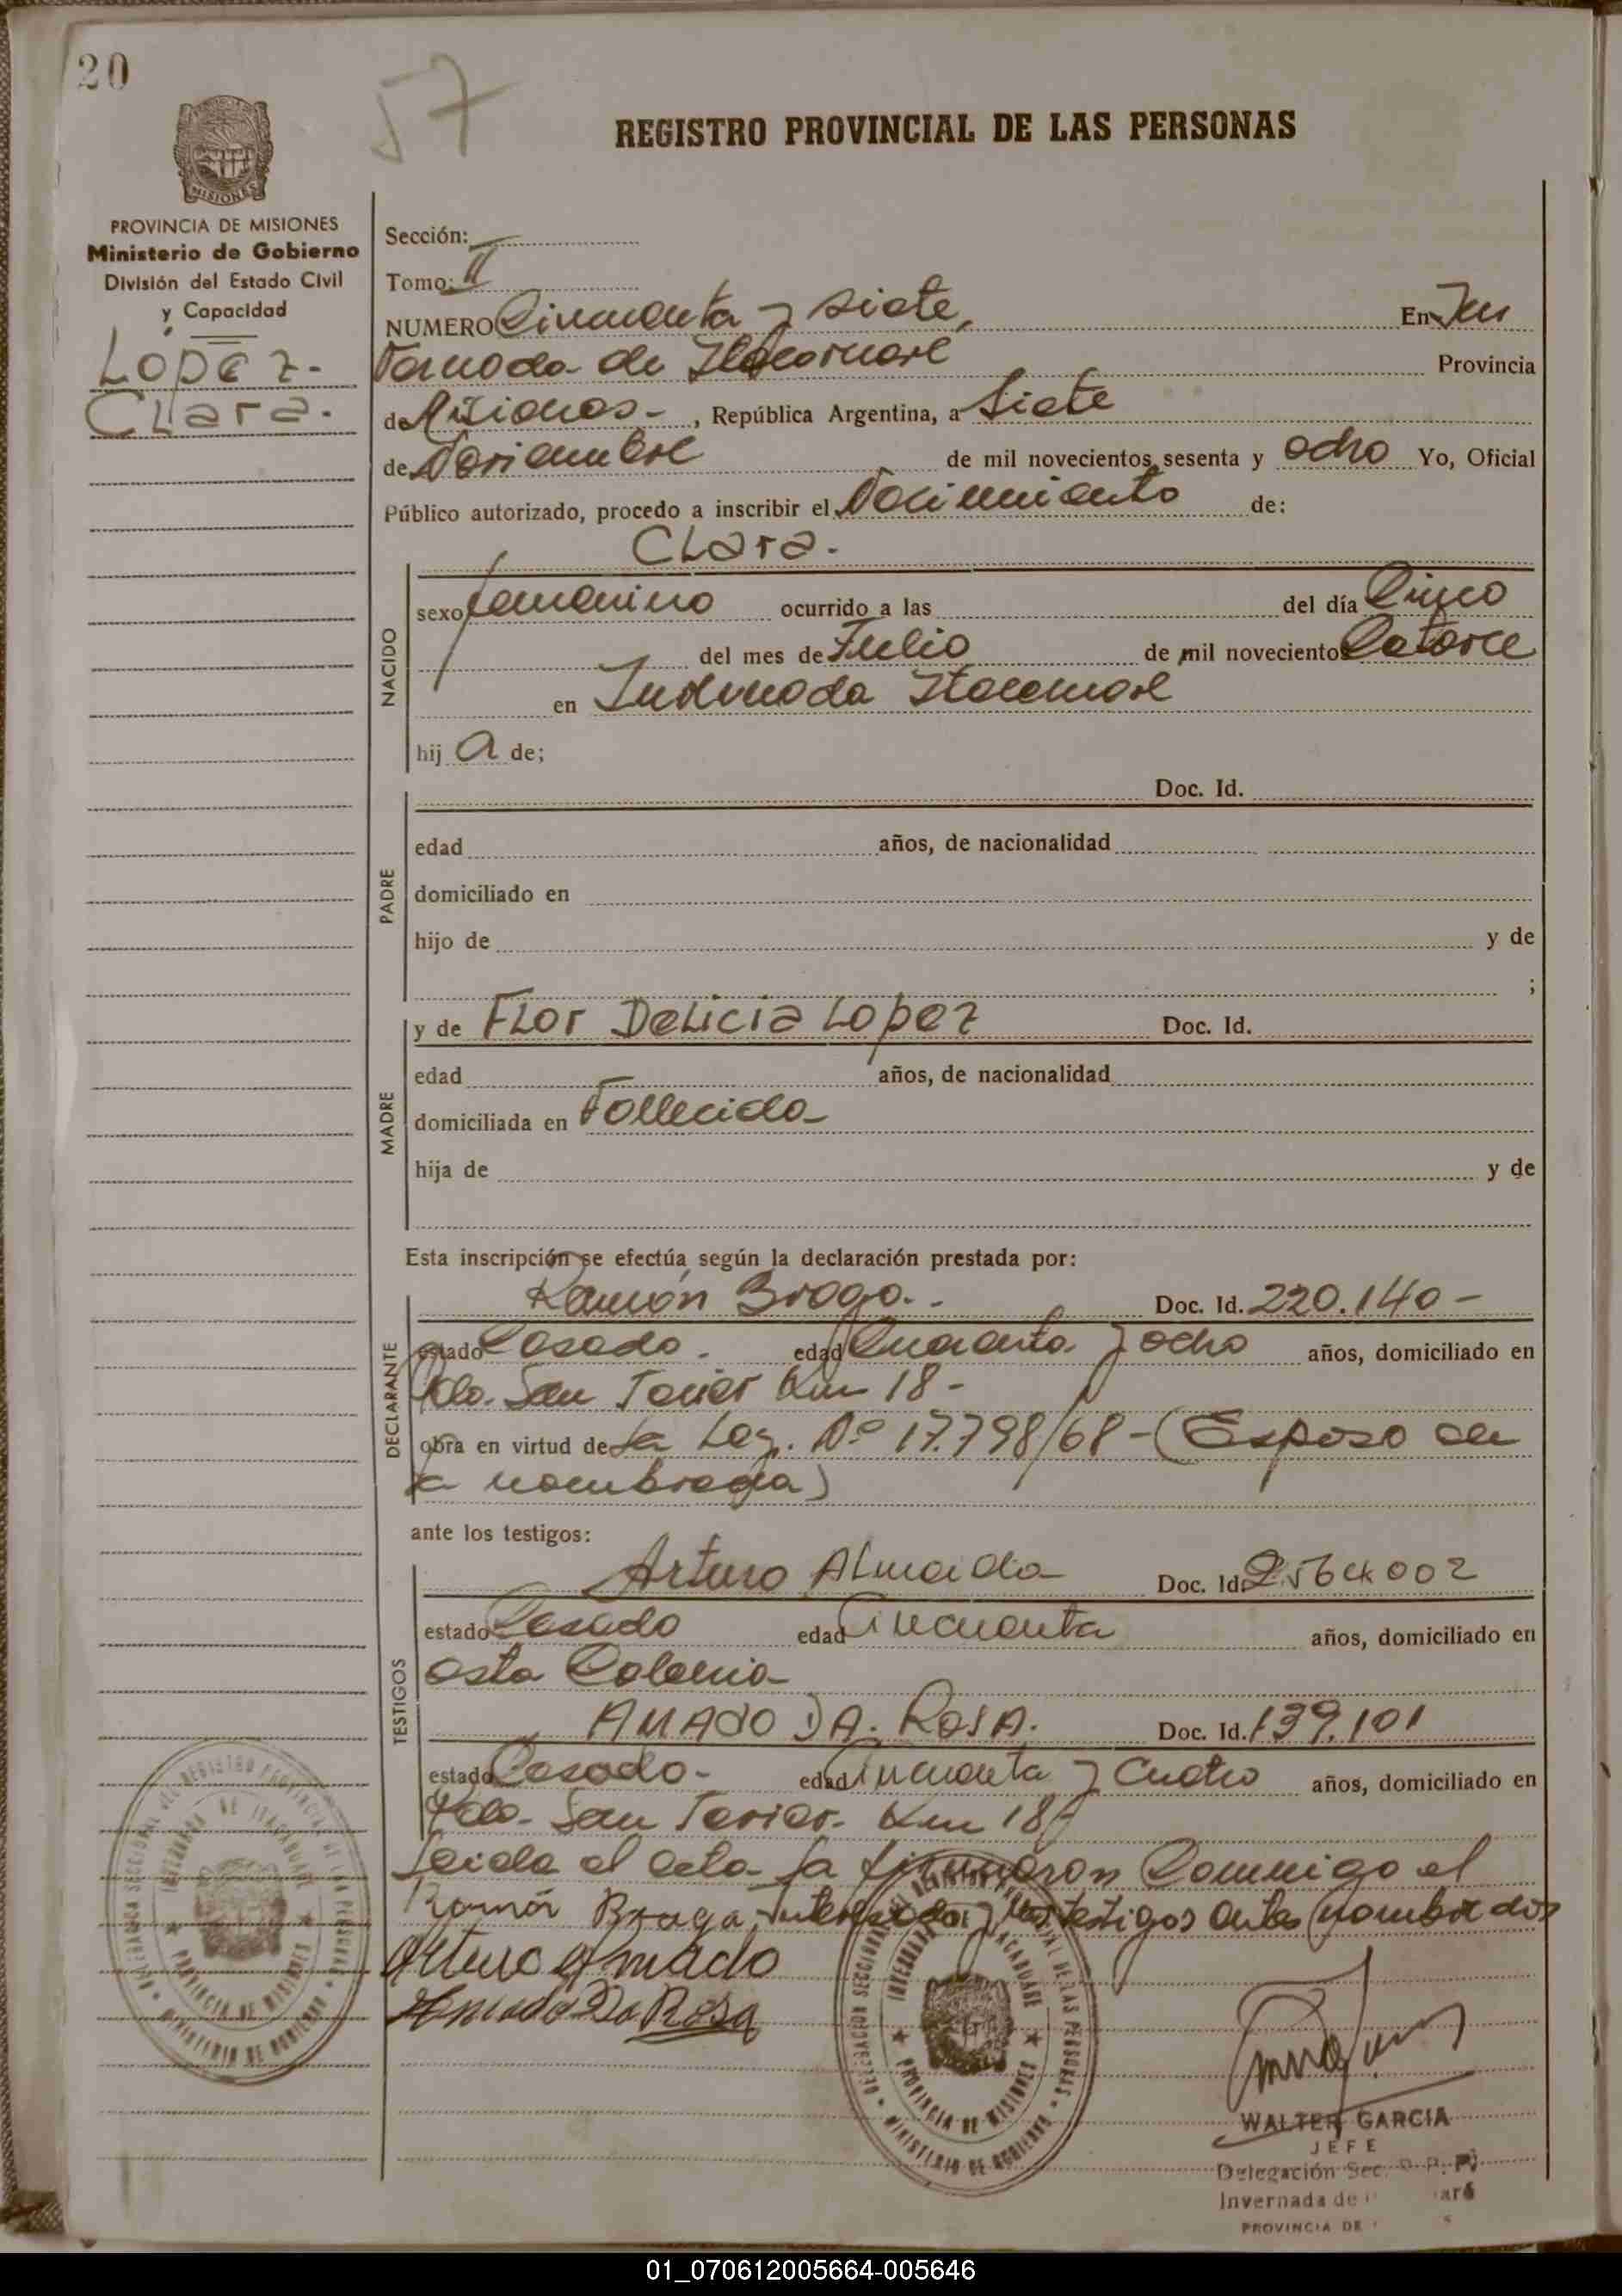 20
57
REGISTRO PROVINCIAL DE LAS PERSONAS
MISIONES
PROVINCIA DE MISIONES
Ministerio de Gobierno
División del Estado Civil
y Capacidad
López.
Clara.
Sección:
Tomo: II
NUMERO Cincuenta y siete, En Inv
Provincia
de Misiones - , República Argentina, a Siete
de Noviembre de mil novecientos sesenta y ocho Yo, Oficial
Público autorizado, procedo a inscribir el Nacimiento de:
Clara.
NACIDO
sexo femenino ocurrido a las del día Cinco
del mes de Julio de mil novecientos Catorce
en
hij a de;
PADRE
Doc. Id.
edad años, de nacionalidad
domiciliado en
hijo de y de
;
MADRE
y de Flor Delicia Lopez Doc. Id.
edad años, de nacionalidad
domiciliada en Fallecida
hija de y de
Esta inscripción se efectúa según la declaración prestada por:
DECLARANTE
Ramón Braga. - Doc. Id. 220.140 -
estado Casado. edad Cuarenta y ocho años, domiciliado en
San Javier Km 18 -
obra en virtud de la Ley. Nº 17.798/68 - (Esposo de
la nombrada)
ante los testigos:
TESTIGOS
Arturo Almada Doc. Id. 2564002
estado Casado edad Cincuenta años, domiciliado en
esta Colonia
AMADO DA. ROSA. Doc. Id. 139.101
estado Casado - edad Cincuenta y Cuatro años, domiciliado en
San Javier. Km 18
Leida el acta la firmaron Conmigo el
Ramón Braga testigos antes nombrados
Arturo Almado
Amado Da Rosa
DELEGACION SECCIONAL DEL REGISTRO PROVINCIAL DE LAS PERSONAS
MINISTERIO DE GOBIERNO
INVERNADA DE ITACARUARE
PROVINCIA DE MISIONES
WALTER GARCIA
JEFE
Delegación Sec. R. P. P.
Invernada de
PROVINCIA DE
01_070612005664-005646